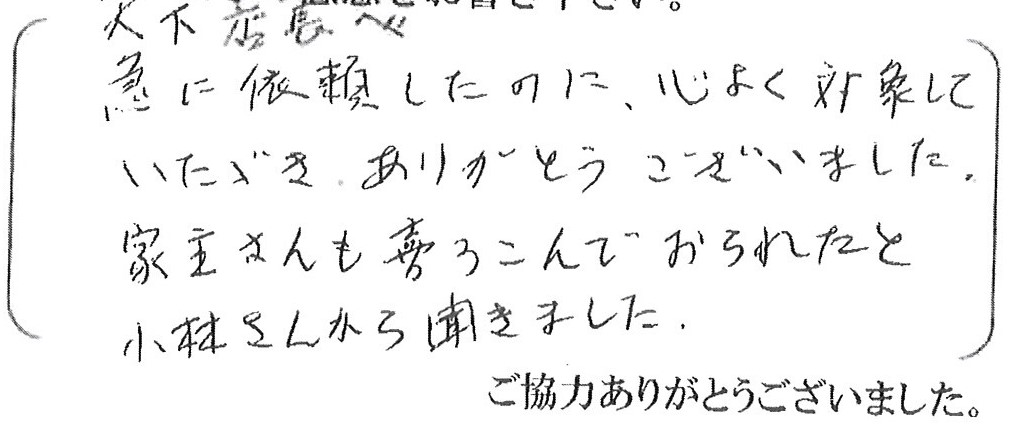 下さい。
天下店長へ
急に依頼したのに、心よく対象して
いただき、ありがとうございました。
家主さんも喜ろこんでおられたと
小林さんから聞きました。
ご協力ありがとうございました。